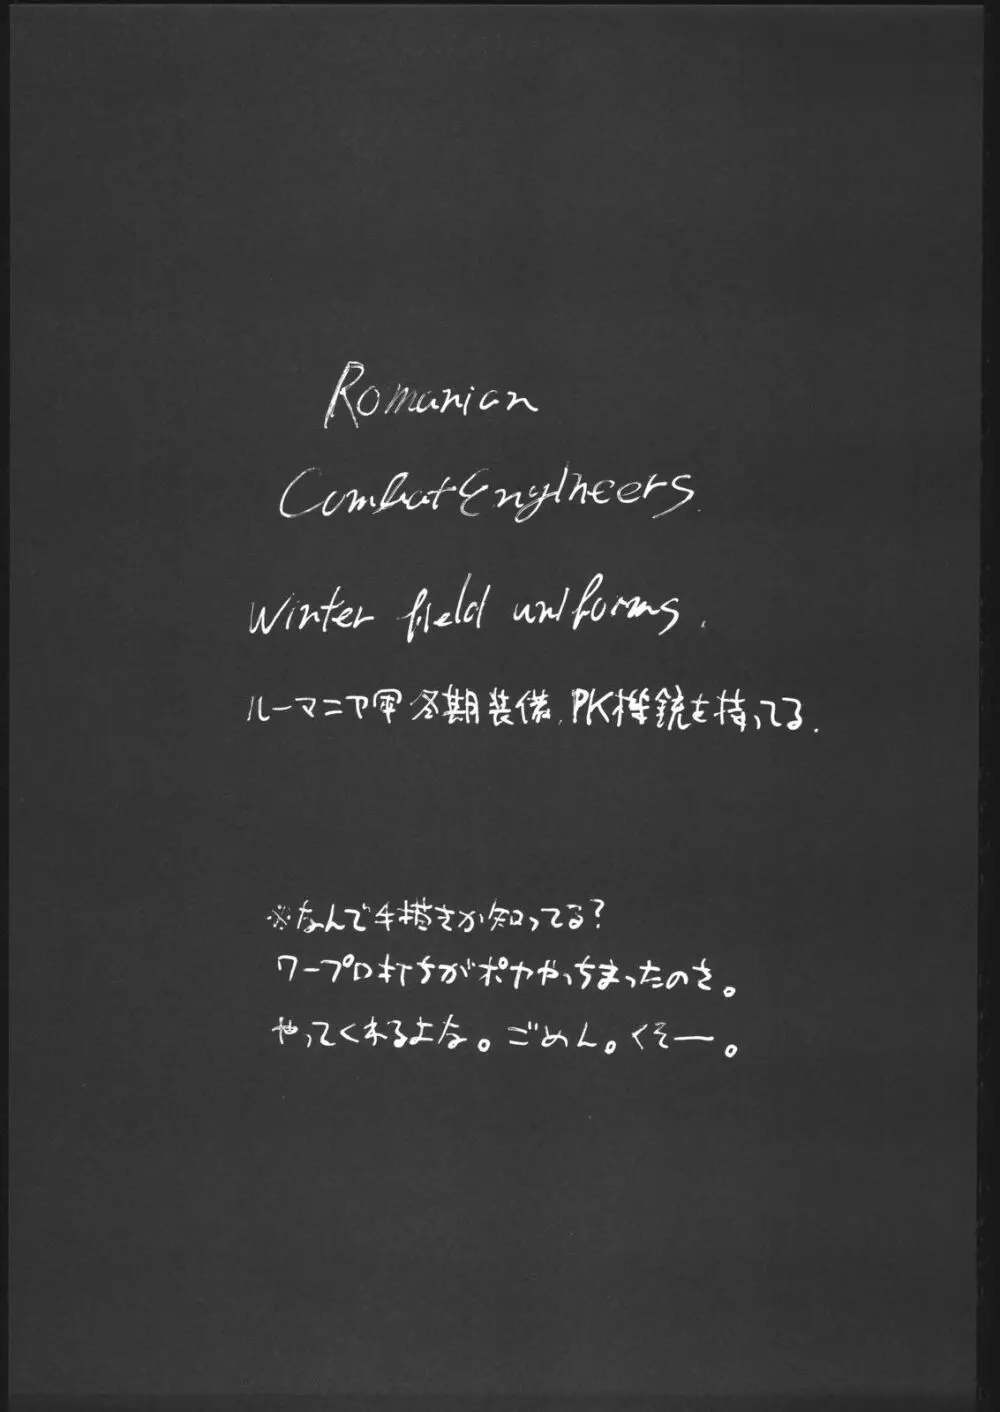 Romanian
Combat Engineers
winter field uniforms.
ルーマニア軍冬期装備、PK機銃を持ってる.
※なんで手描きか知ってる?
ワープロ打ちがポカやっちまったのさ。
やってくれるよな。ごめん。くそー。